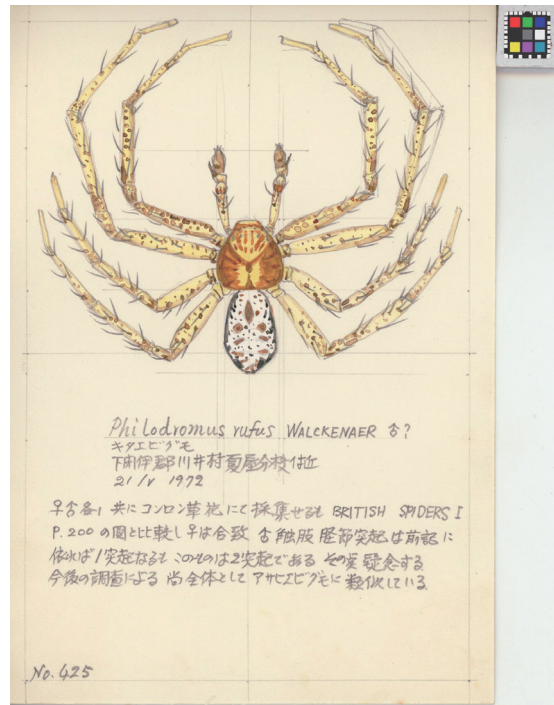 Philodromus rufus WALCKENAER 舎?
キタエビグモ
下閉伊郡川井村夏屋分校付近
21/V 1972
早舎各1 共にコンロン草花にて採集せるも BRITISH SPIDERS I
P.200の図と比較し早は合致 舎触肢脛節突起は前記に
依れば1突起なるもこのものは2突起である その点疑念する
今後の調査による 尚全体としてアサヒエビグモに類似している
No.425